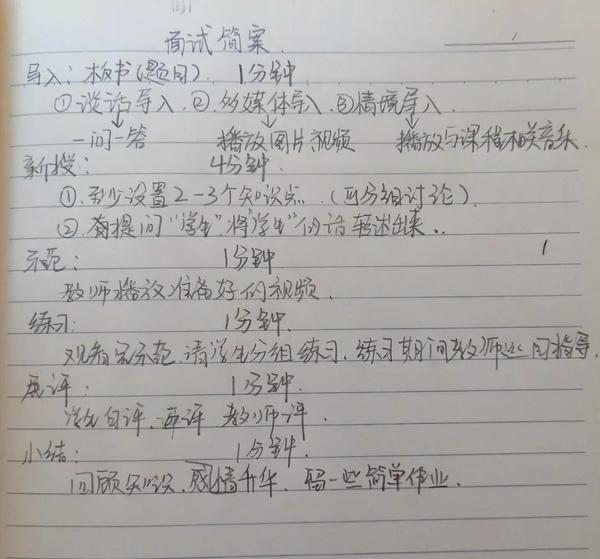 面试简案.
导入: 板书(题目). 1分钟
①谈话导入. ②多媒体导入. ③情境导入.
一问一答 播放图片视频 播放与课程相关音乐.
新授: 4分钟.
①. 至少设置2-3个知识点. (四分组讨论).
②. 有提问"学生". 将"学生"的话转述出来..
示范: 1分钟
教师播放准备好的视频.
练习: 1分钟.
观看完示范. 请学生分组练习. 练习期间教师巡回指导.
展评: 1分钟.
学生自评. 互评 教师评.
小结: 1分钟.
回顾知识. 感情升华. 留一些简单作业.